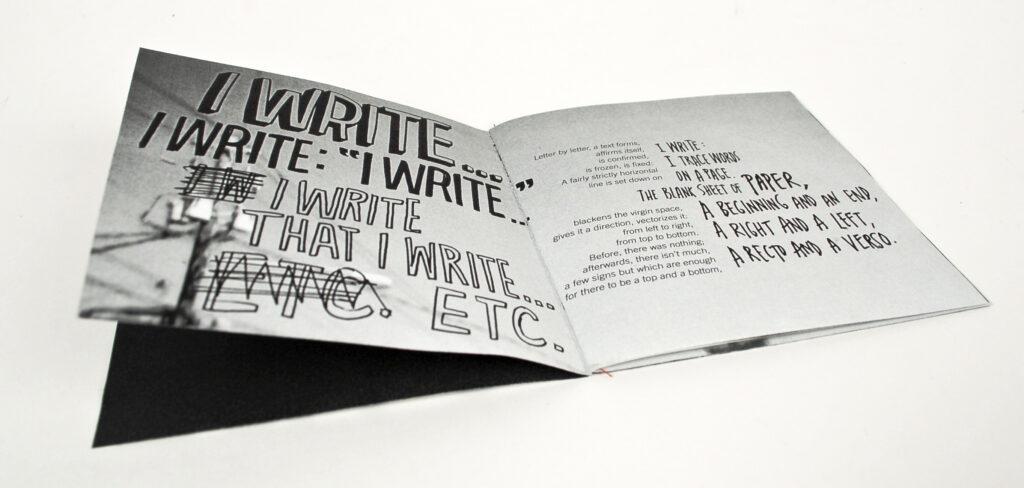 I WRITE...
I WRITE: "I WRITE..."
I W I WRITE
THAT I WRITE...
ETC. ETC.
I WRITE:
I TRACE WORDS
ON A PAGE.
Letter by letter, a text forms,
affirms itself,
is confirmed,
is frozen, is fixed:
A fairly strictly horizontal
line is set down on
THE BLANK SHEET OF PAPER,
blackens the virgin space,
gives it a direction, vectorizes it:
from left to right,
from top to bottom.
Before, there was nothing,
afterwards, there isn't much,
a few signs but which are enough
for there to be a top and a bottom,
A BEGINNING AND AN END,
A RIGHT AND A LEFT,
A RECTO AND A VERSO.